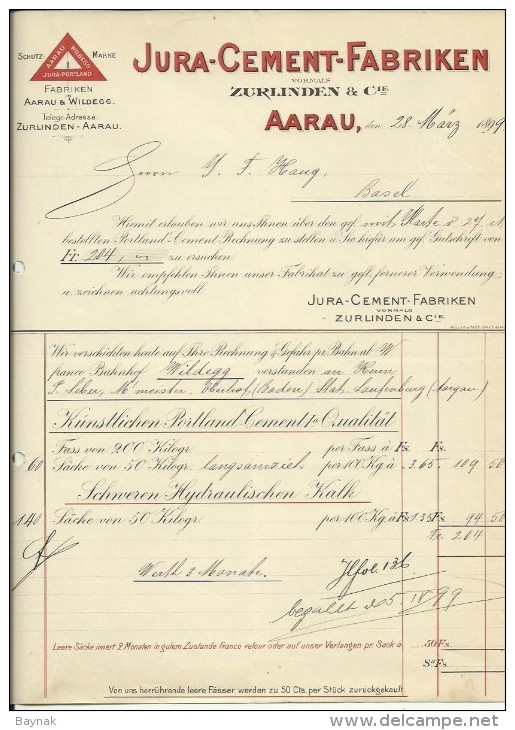 SCHUTZ- MARKE
AARAU WILDEGG
JURA-PORTLAND
FABRIKEN
IN
AARAU & WILDEGG.
Telegr.-Adresse:
ZURLINDEN-AARAU.
JURA-CEMENT-FABRIKEN
VORMALS
ZURLINDEN & CIE
AARAU, den 28. März 1899
Herrn J. F. Haug,
Basel
Hiemit erlauben wir uns Ihnen über den gefl. mit Karte d. 27. ct.
bestellten Portland-Cement Rechnung zu stellen u. Sie hiefür um gefl. Gutschrift von
Fr. 204.- zu ersuchen.
Wir empfehlen Ihnen unser Fabrikat zu gefl. fernerer Verwendung
u. zeichnen achtungsvoll
JURA-CEMENT-FABRIKEN
VORMALS
ZURLINDEN & CIE.
Wir verschickten heute auf Ihre Rechnung & Gefahr pr. Bahn ab
franco Bahnhof Wildegg verstanden an Herrn
F. Leber, Mrmeister, Oberhof (Baden) Stat. Laufenburg (Aargau)
Künstlichen Portland-Cement Ia Qualität
Fass von 200 Kilogr. per Fass à Fs. Fs.
60 Säcke von 50 Kilogr. langsamzieh. per 100 Kg. à Fs. 3.65 Fs. 109 50
Schweren Hydraulischen Kalk
140 Säcke von 50 Kilogr. per 100 Kg. à Fs. 1.35 Fs. 94 50
Fr. 204
Werth 3 Monate.
fol. 136
bezahlt d. 5. IV 99
Leere Säcke innert 2 Monaten in gutem Zustande franco retour oder auf unser Verlangen pr. Sack à 50 Fs.
Sa Fs.
Von uns herrührende leere Fässer werden zu 50 Cts. per Stück zurückgekauft.
Baynak
delcampe.net